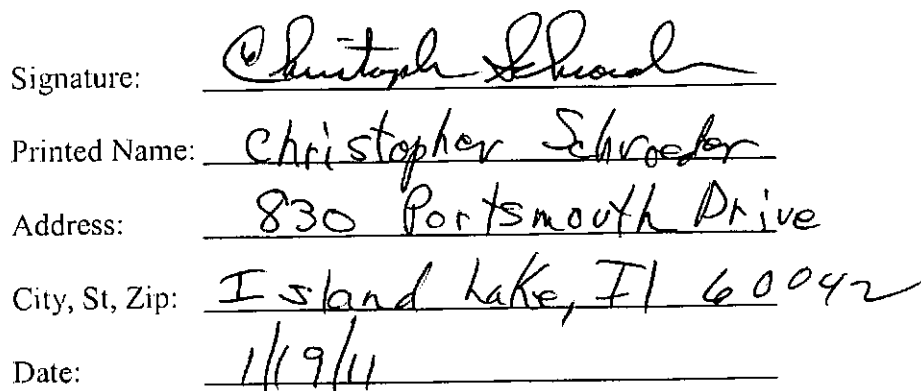 Signature: Christoph Schroed
Printed Name: Christopher Schroeder
Address: 830 Portsmouth Drive
City, St, Zip: Island Lake, Il 60042
Date: 1/19/11